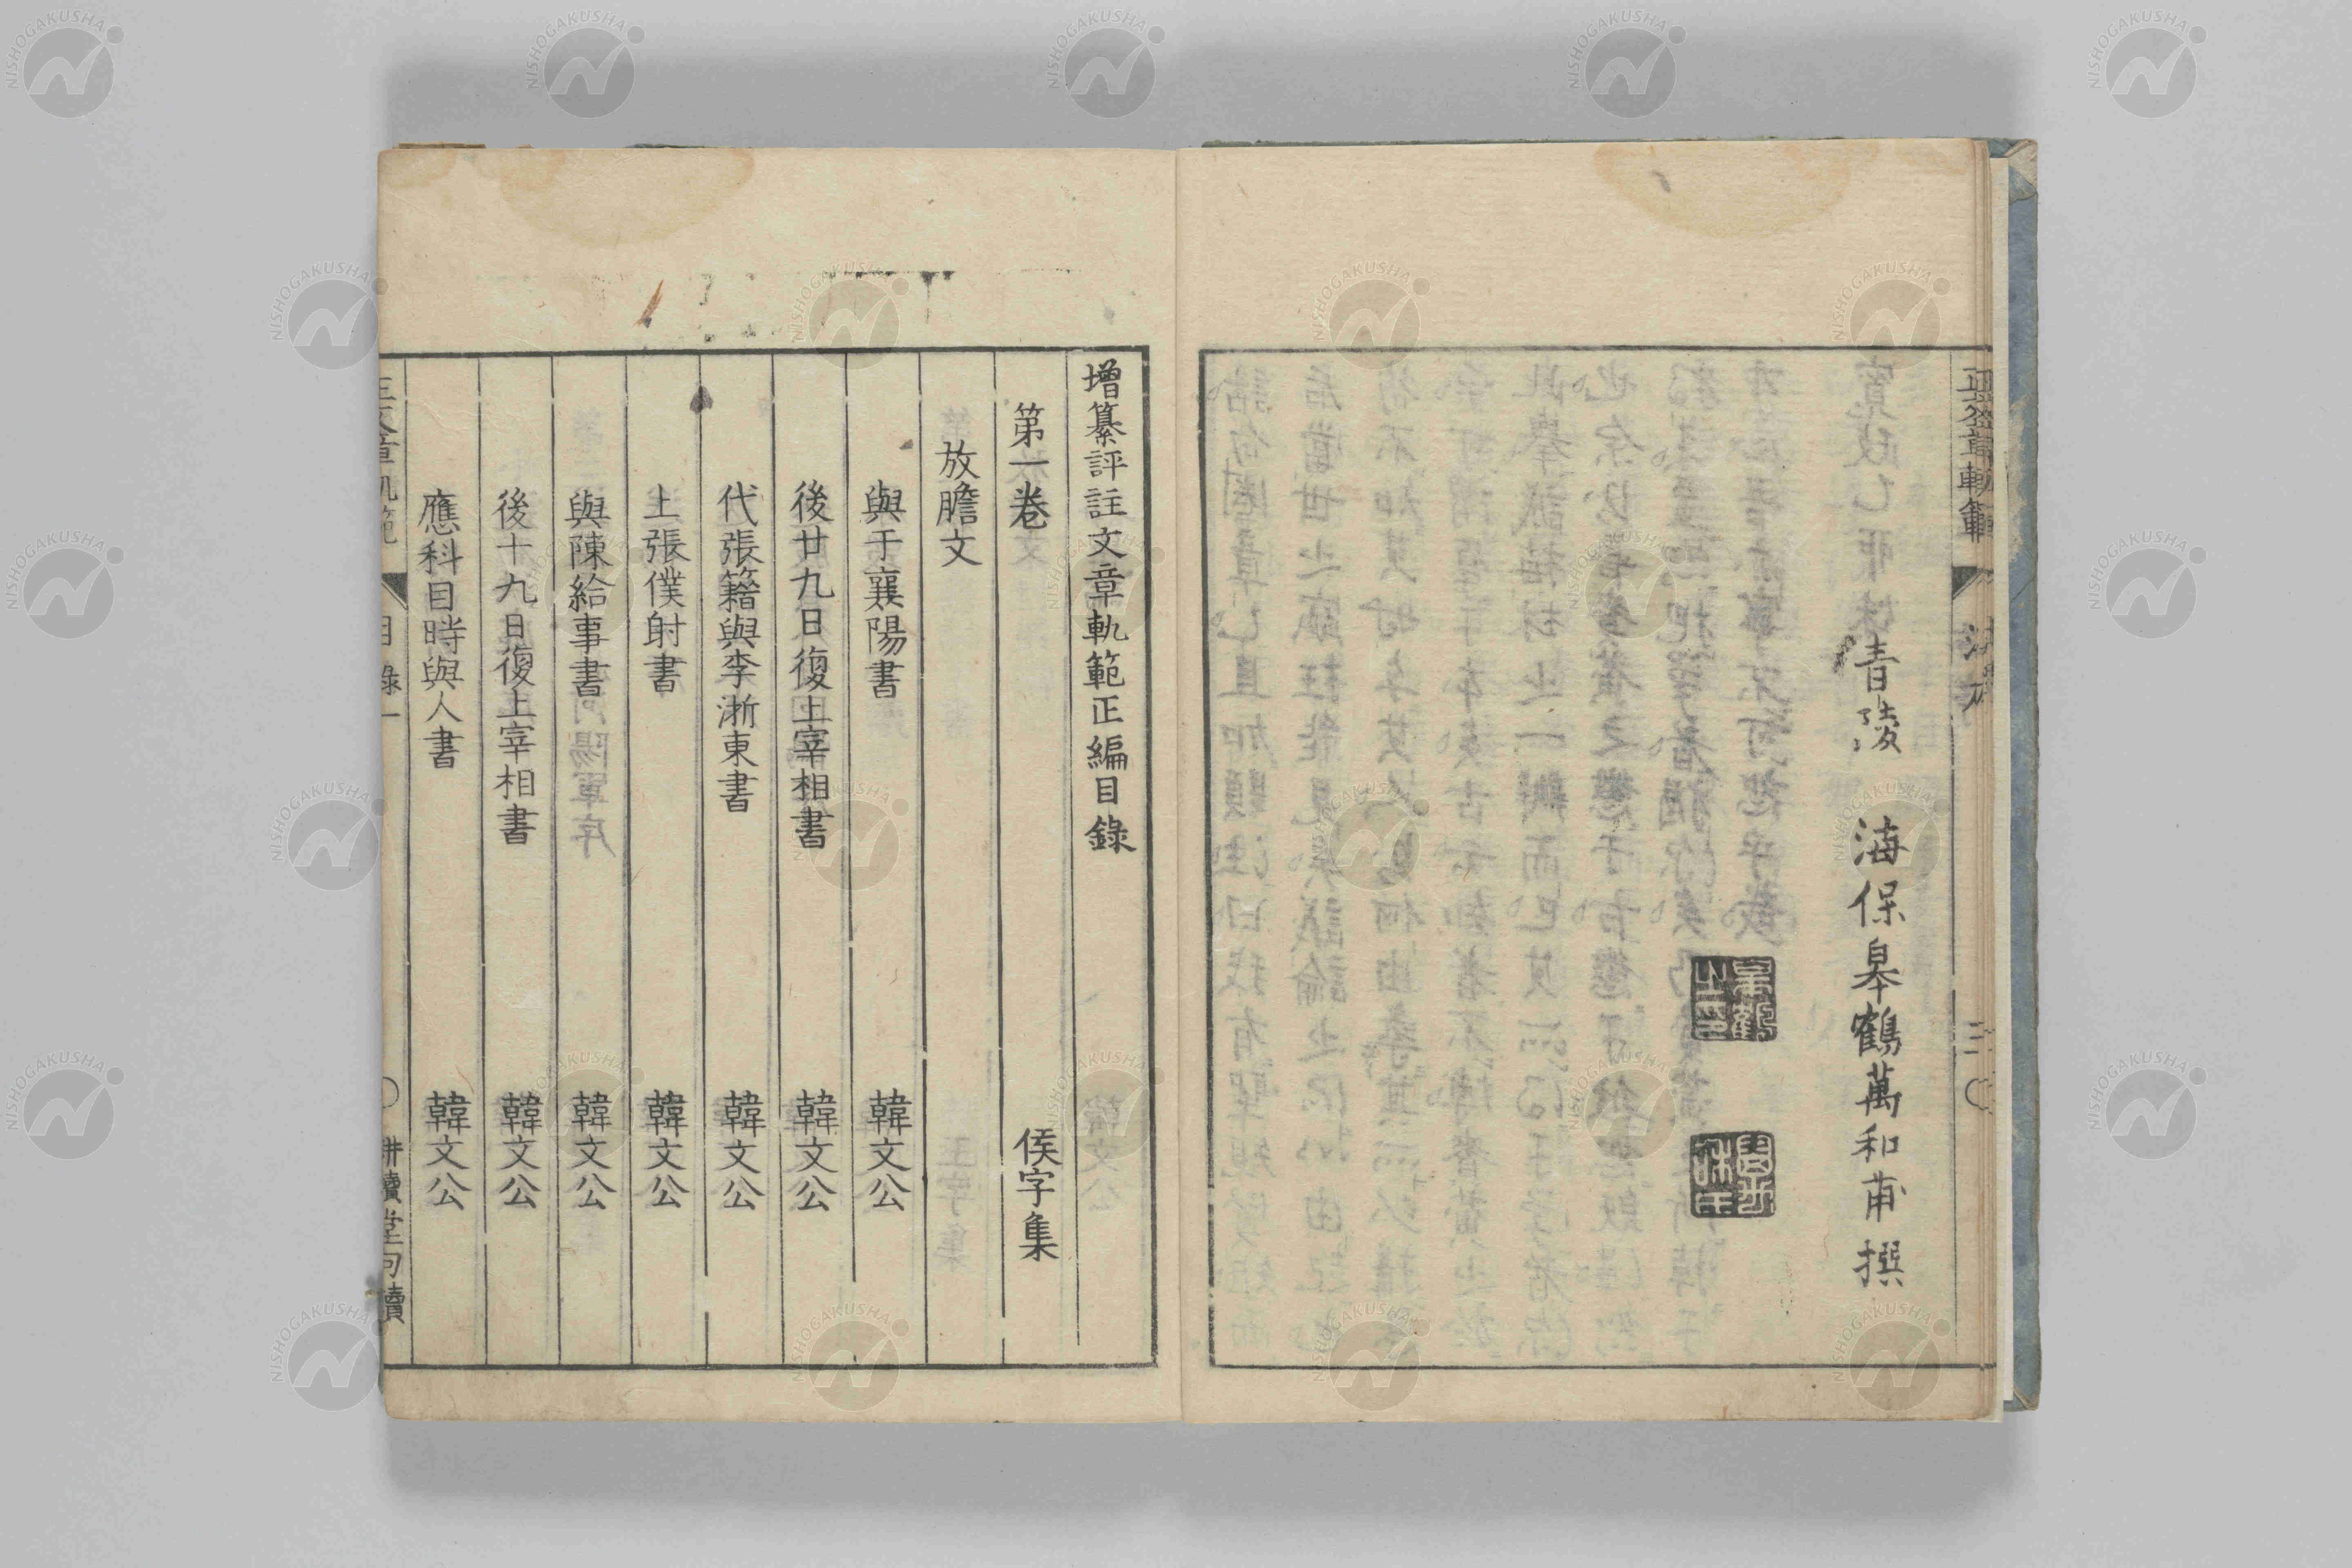 青陵 海保皋鶴萬和甫 撰
增纂評註文章軌範正編目錄
第一卷 侯字集
放膽文
與于襄陽書 韓文公
後廿九日復上宰相書 韓文公
代張籍與李浙東書 韓文公
上張僕射書 韓文公
與陳給事書 韓文公
後十九日復上宰相書 韓文公
應科目時與人書 韓文公
目錄一
耕讀堂句讀
NISHOGAKUSHA